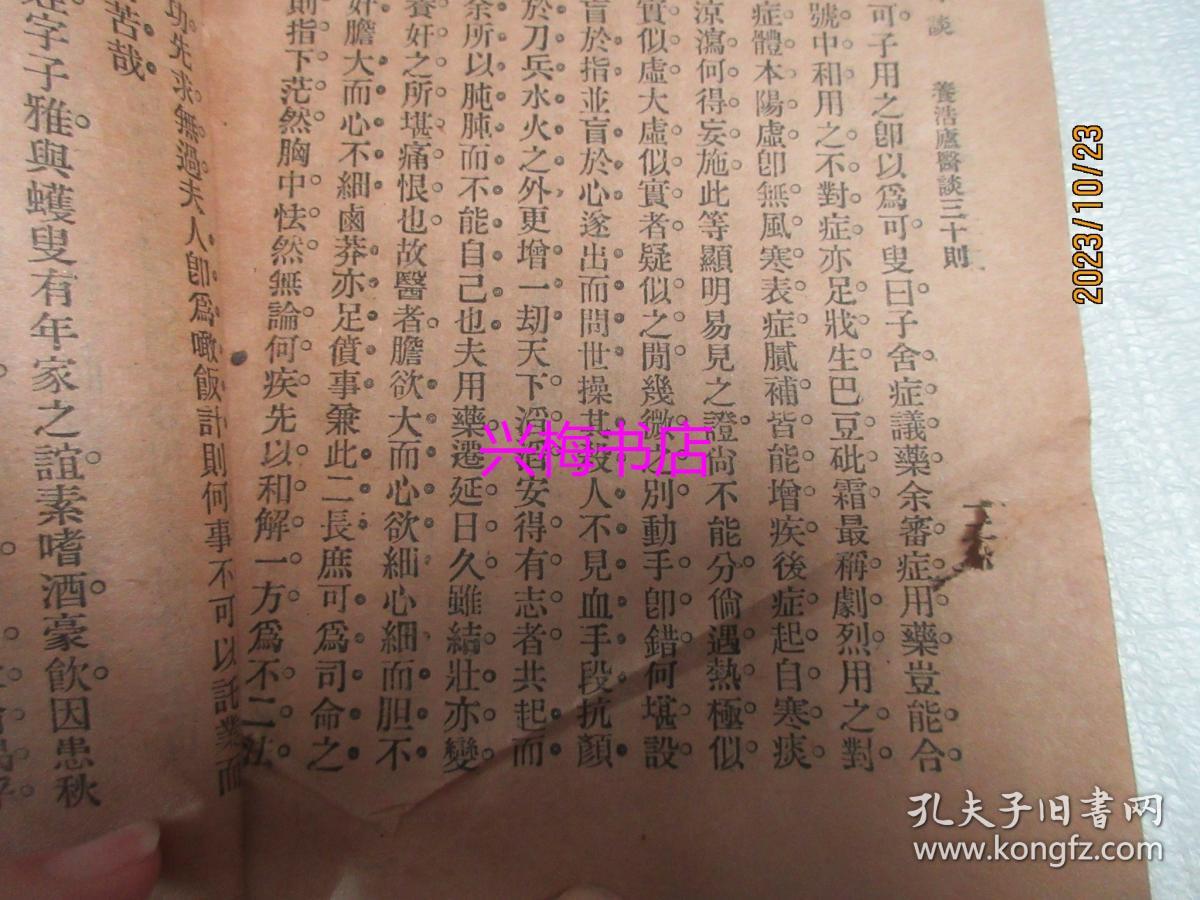 談 養浩廬醫談三十則
可子用之卽以爲可叟曰子舍症議藥余審症用藥豈能合
號中和用之不對症亦足戕生巴豆砒霜最稱劇烈用之對
症體本陽虛卽無風寒表症膩補皆能增疾後症起自寒痰
涼瀉何得妄施此等顯明易見之證尚不能分倘遇熱極似
實似虛大虛似實者疑似之間幾微之別動手卽錯何堪設
盲於指並盲於心遂出而問世操其殺人不見血手段抗顏
於刀兵水火之外更增一劫天下滔滔安得有志者共起而
余所以肫肫而不能自己也夫用藥遷延日久雖結壯亦變
養奸之所堪痛恨也故醫者膽欲大而心欲細心細而胆不
好膽大而心不細鹵莽亦足僨事兼此二長庶可爲司命之
則指下茫然胸中怯然無論何疾先以和解一方爲不二法
功先求無過夫人卽爲噉飯計則何事不可以託業而
苦哉
字子雅與蠖叟有年家之誼素嗜酒豪飲因患秋
兴梅书店
2023/10/23
孔夫子旧书网
www.kongfz.com